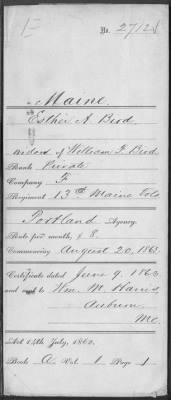 No. 27124
Maine.
Esther A. Bird
Widow of William F. Bird
Rank Private
Company F
Regiment 13th Maine Vols
Portland Agency.
Rate per month, $ 8.
Commencing August 20, 1862.
Certificate dated June 9, 1863.
and sent to Wm. M. Harris
Auburn
Me.
Act 14th July, 1862.
Book A Vol. 1 Page 1